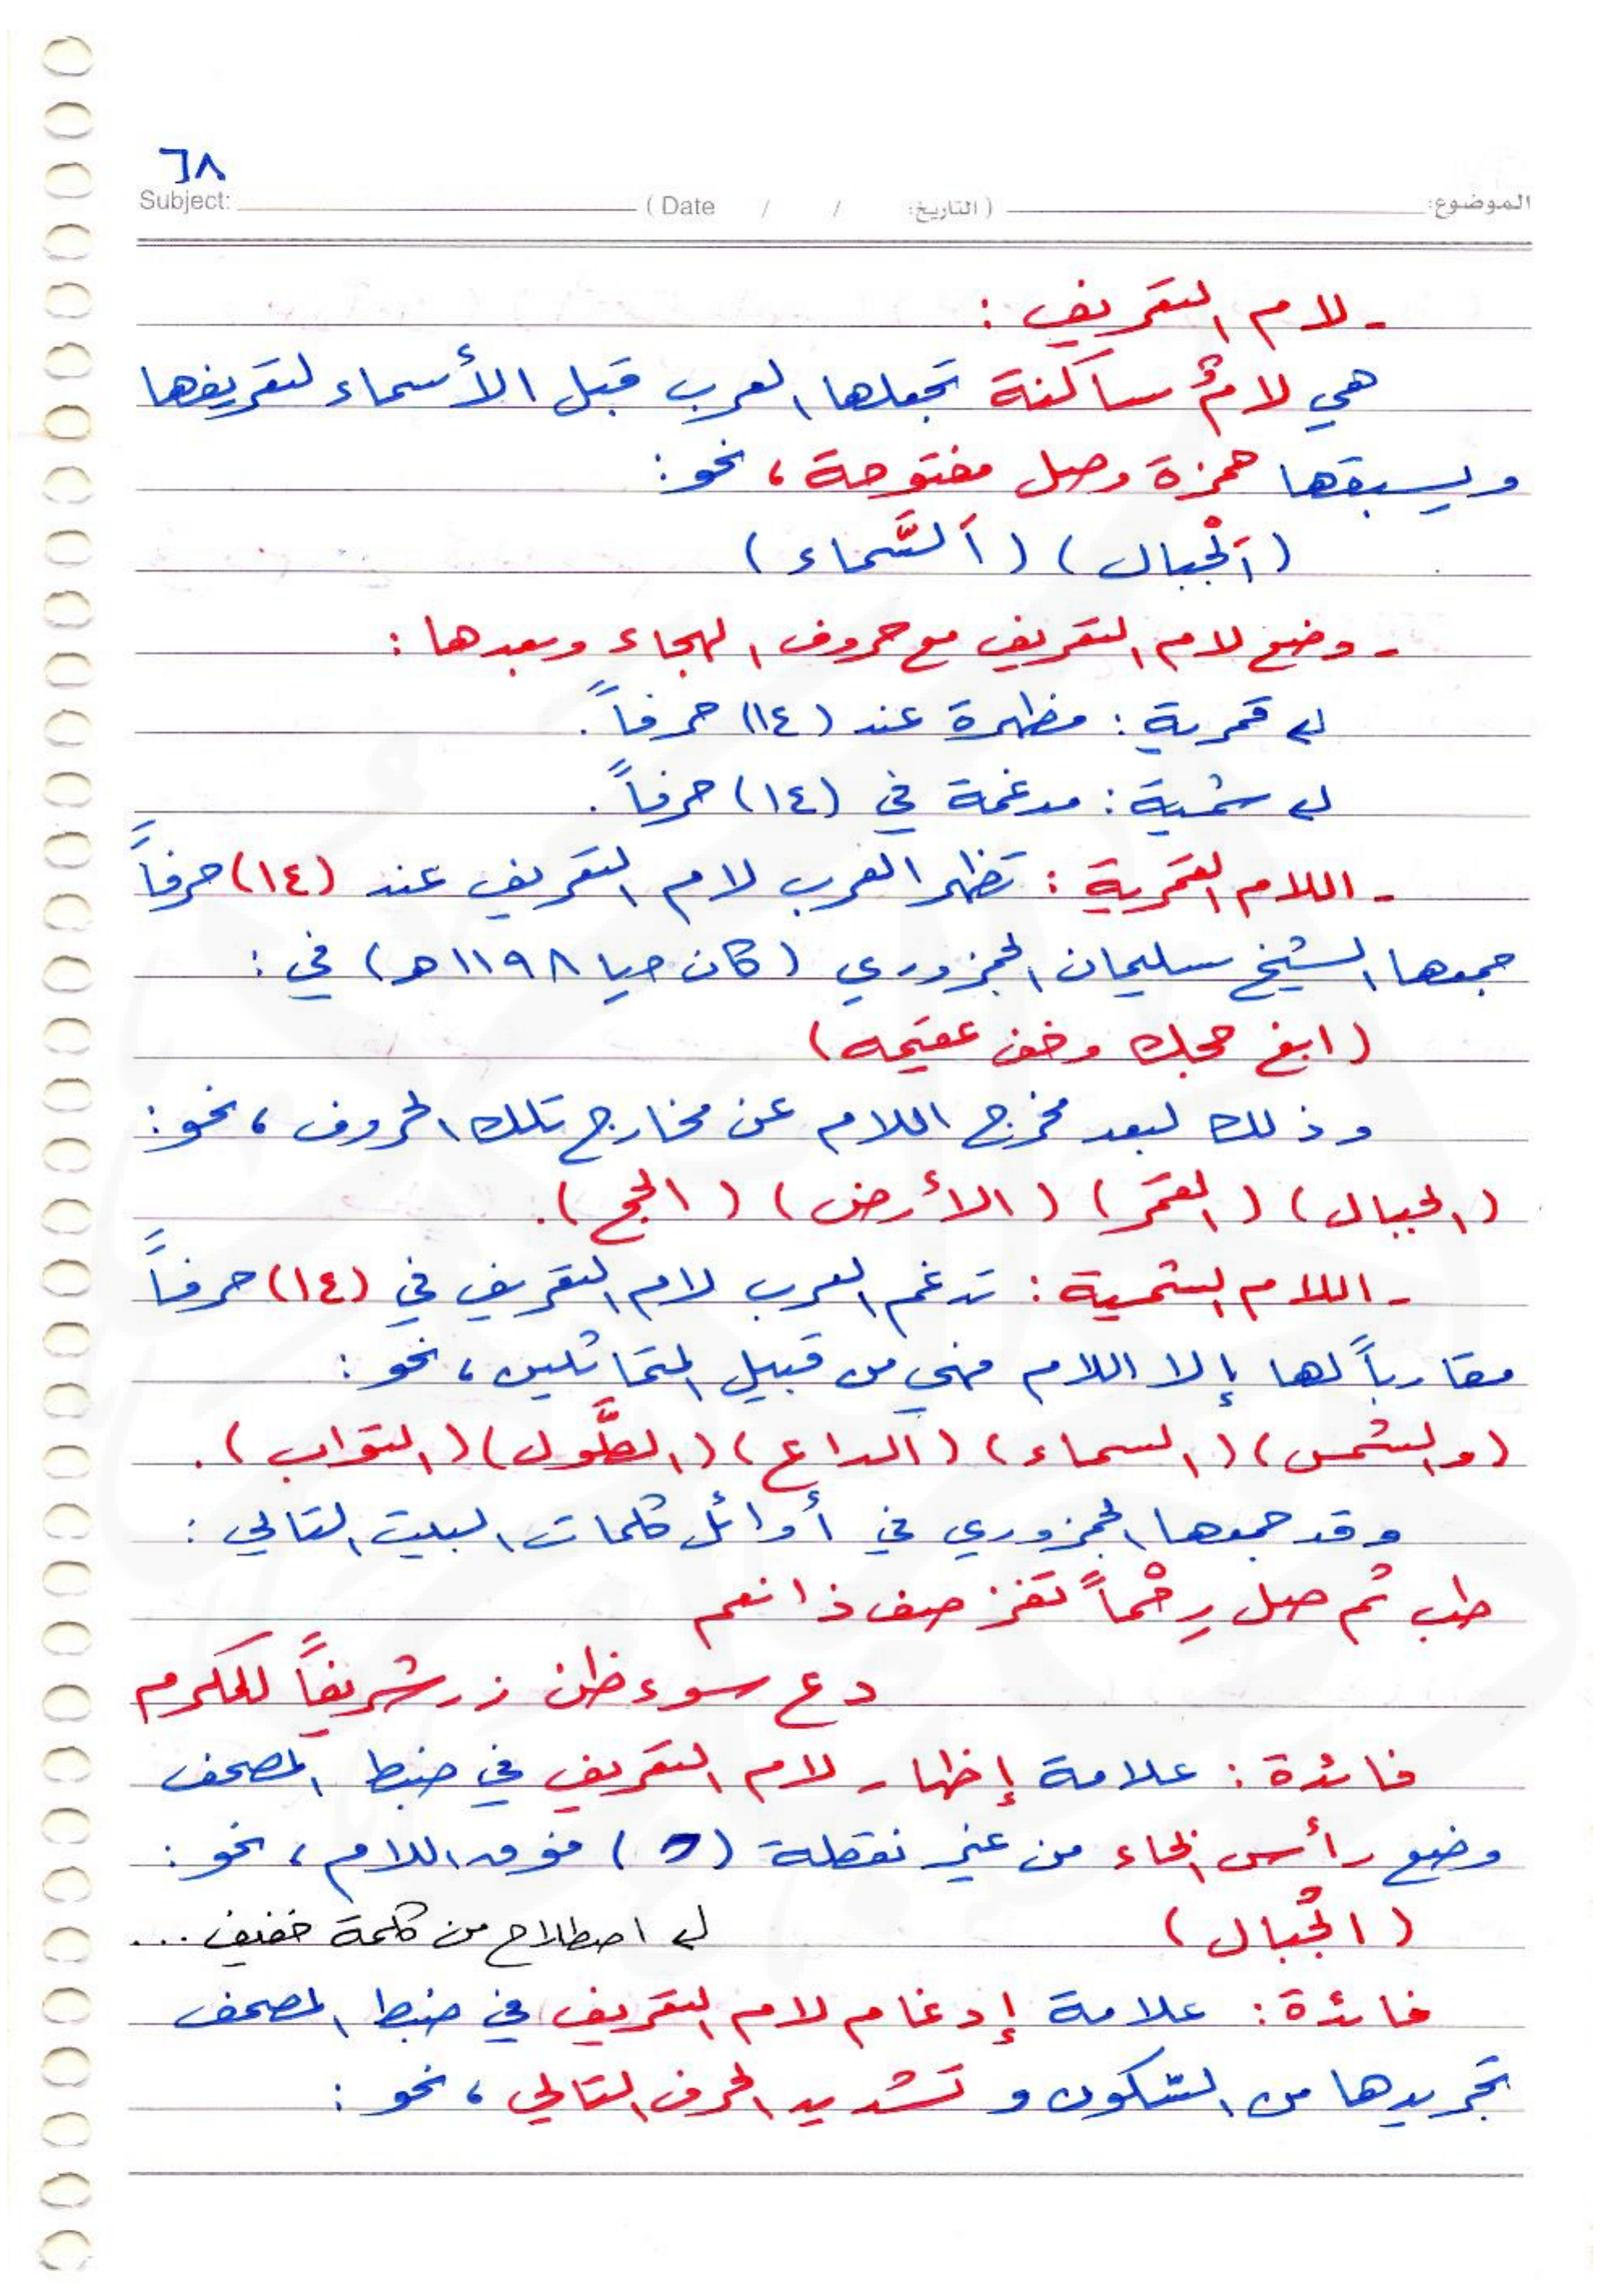 ٦٨
Subject: ( Date / / التاريخ: ) الموضوع:
- لام التعريف :
هي لامٌ ساكنة تجعلها العرب قبل الأسماء لتعريفها
ويسبقها همزة وصل مفتوحة ، نحو :
(اَلْجبال) (اَلسَّماء)
- وضع لام التعريف مع حروف الهجاء وبعدها :
↳ قمرية : مظهرة عند (١٤) حرفاً .
↳ شمسية : مدغمة في (١٤) حرفاً .
- اللام القمرية : تظهر العرب لام التعريف عند (١٤) حرفاً
جمعها الشيخ سليمان الجمزوري (كان حيا ١١٩٨هـ) في :
(ابغ حجك وخف عقيمه)
وذلك لبعد مخرج اللام عن مخارج تلك الحروف ، نحو :
(الجبال) (القمر) (الأرض) (الحج) .
- اللام الشمسية : تدغم العرب لام التعريف في (١٤) حرفاً
مقارباً لها إلا اللام فهي من قبيل المتماثلين ، نحو :
(والشمس) (السماء) (الداع) (الطَّول) (التواب) .
وقد جمعها الجمزوري في أوائل كلمات البيت التالي :
طب ثم صل رِحْماً تفز ضف ذا نعم
دع سوء ظن زر شريفاً للكرم
فائدة : علامة إظهار لام التعريف في ضبط المصحف
وضع رأس الخاء من غير نقطة (ح) فوق اللام ، نحو :
(الْجبال) ↳ اصطلاح من كلمة خفيف ...
فائدة : علامة إدغام لام التعريف في ضبط المصحف
تجريدها من السكون و تشديد الحرف التالي ، نحو :